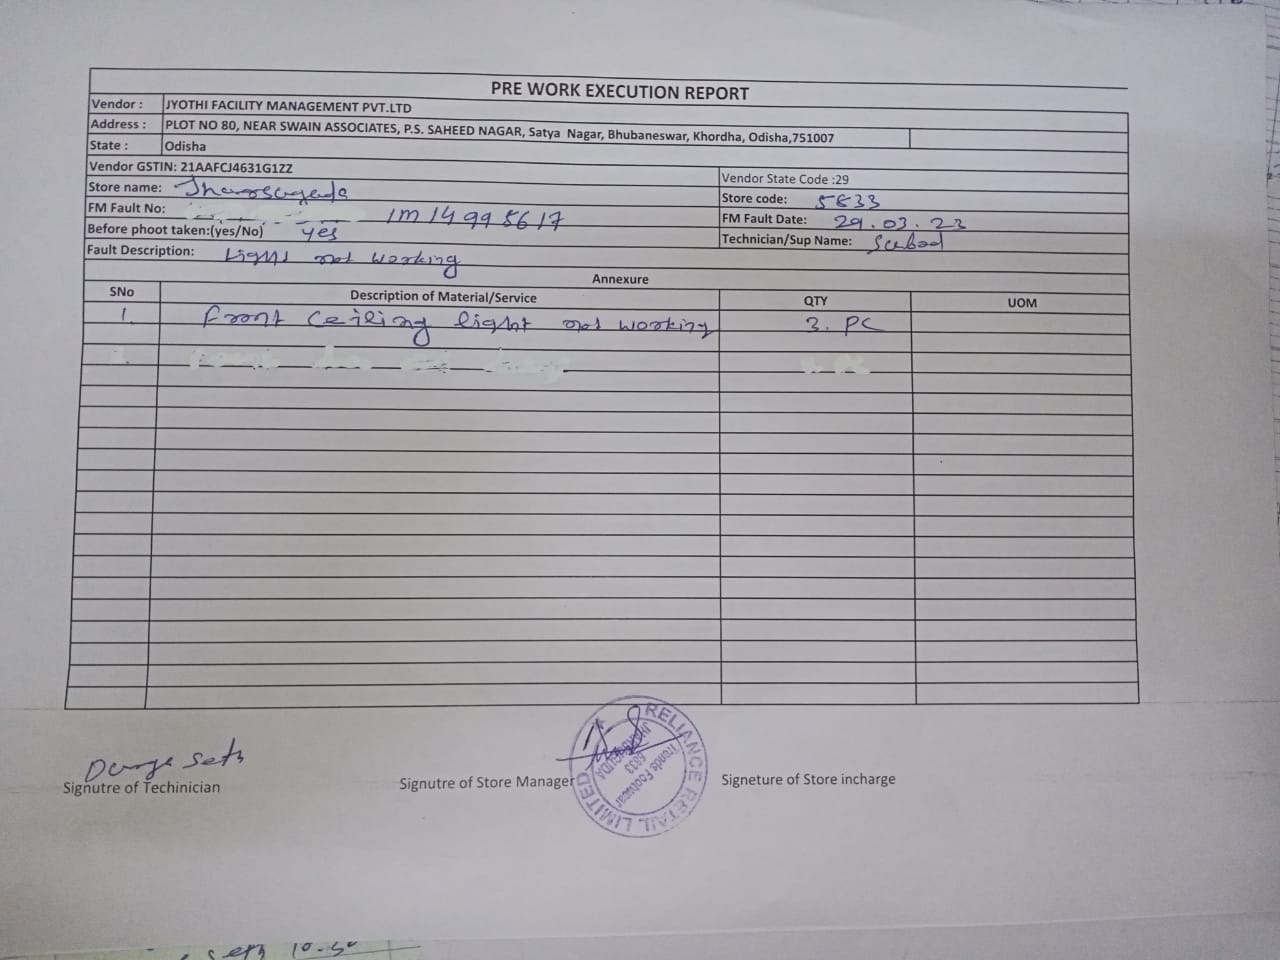 PRE WORK EXECUTION REPORT
Vendor : JYOTHI FACILITY MANAGEMENT PVT.LTD
Address : PLOT NO 80, NEAR SWAIN ASSOCIATES, P.S. SAHEED NAGAR, Satya Nagar, Bhubaneswar, Khordha, Odisha,751007
State : Odisha
Vendor GSTIN: 21AAFCJ4631G1ZZ Vendor State Code :29
Store name: Jharsugeda Store code: 5833
FM Fault No: 1M14995617 FM Fault Date: 29.03.23
Before phoot taken:(yes/No) yes Technician/Sup Name:
Fault Description: Light not working
Annexure
SNo Description of Material/Service QTY UOM
1. front ceiling light not working 3. PC
Seth
Signutre of Techinician Signutre of Store Manager Signeture of Store incharge
RELIANCE RETAIL LIMITED
Trends Footwear
6833
JHARSUGUDA
seth 10.30